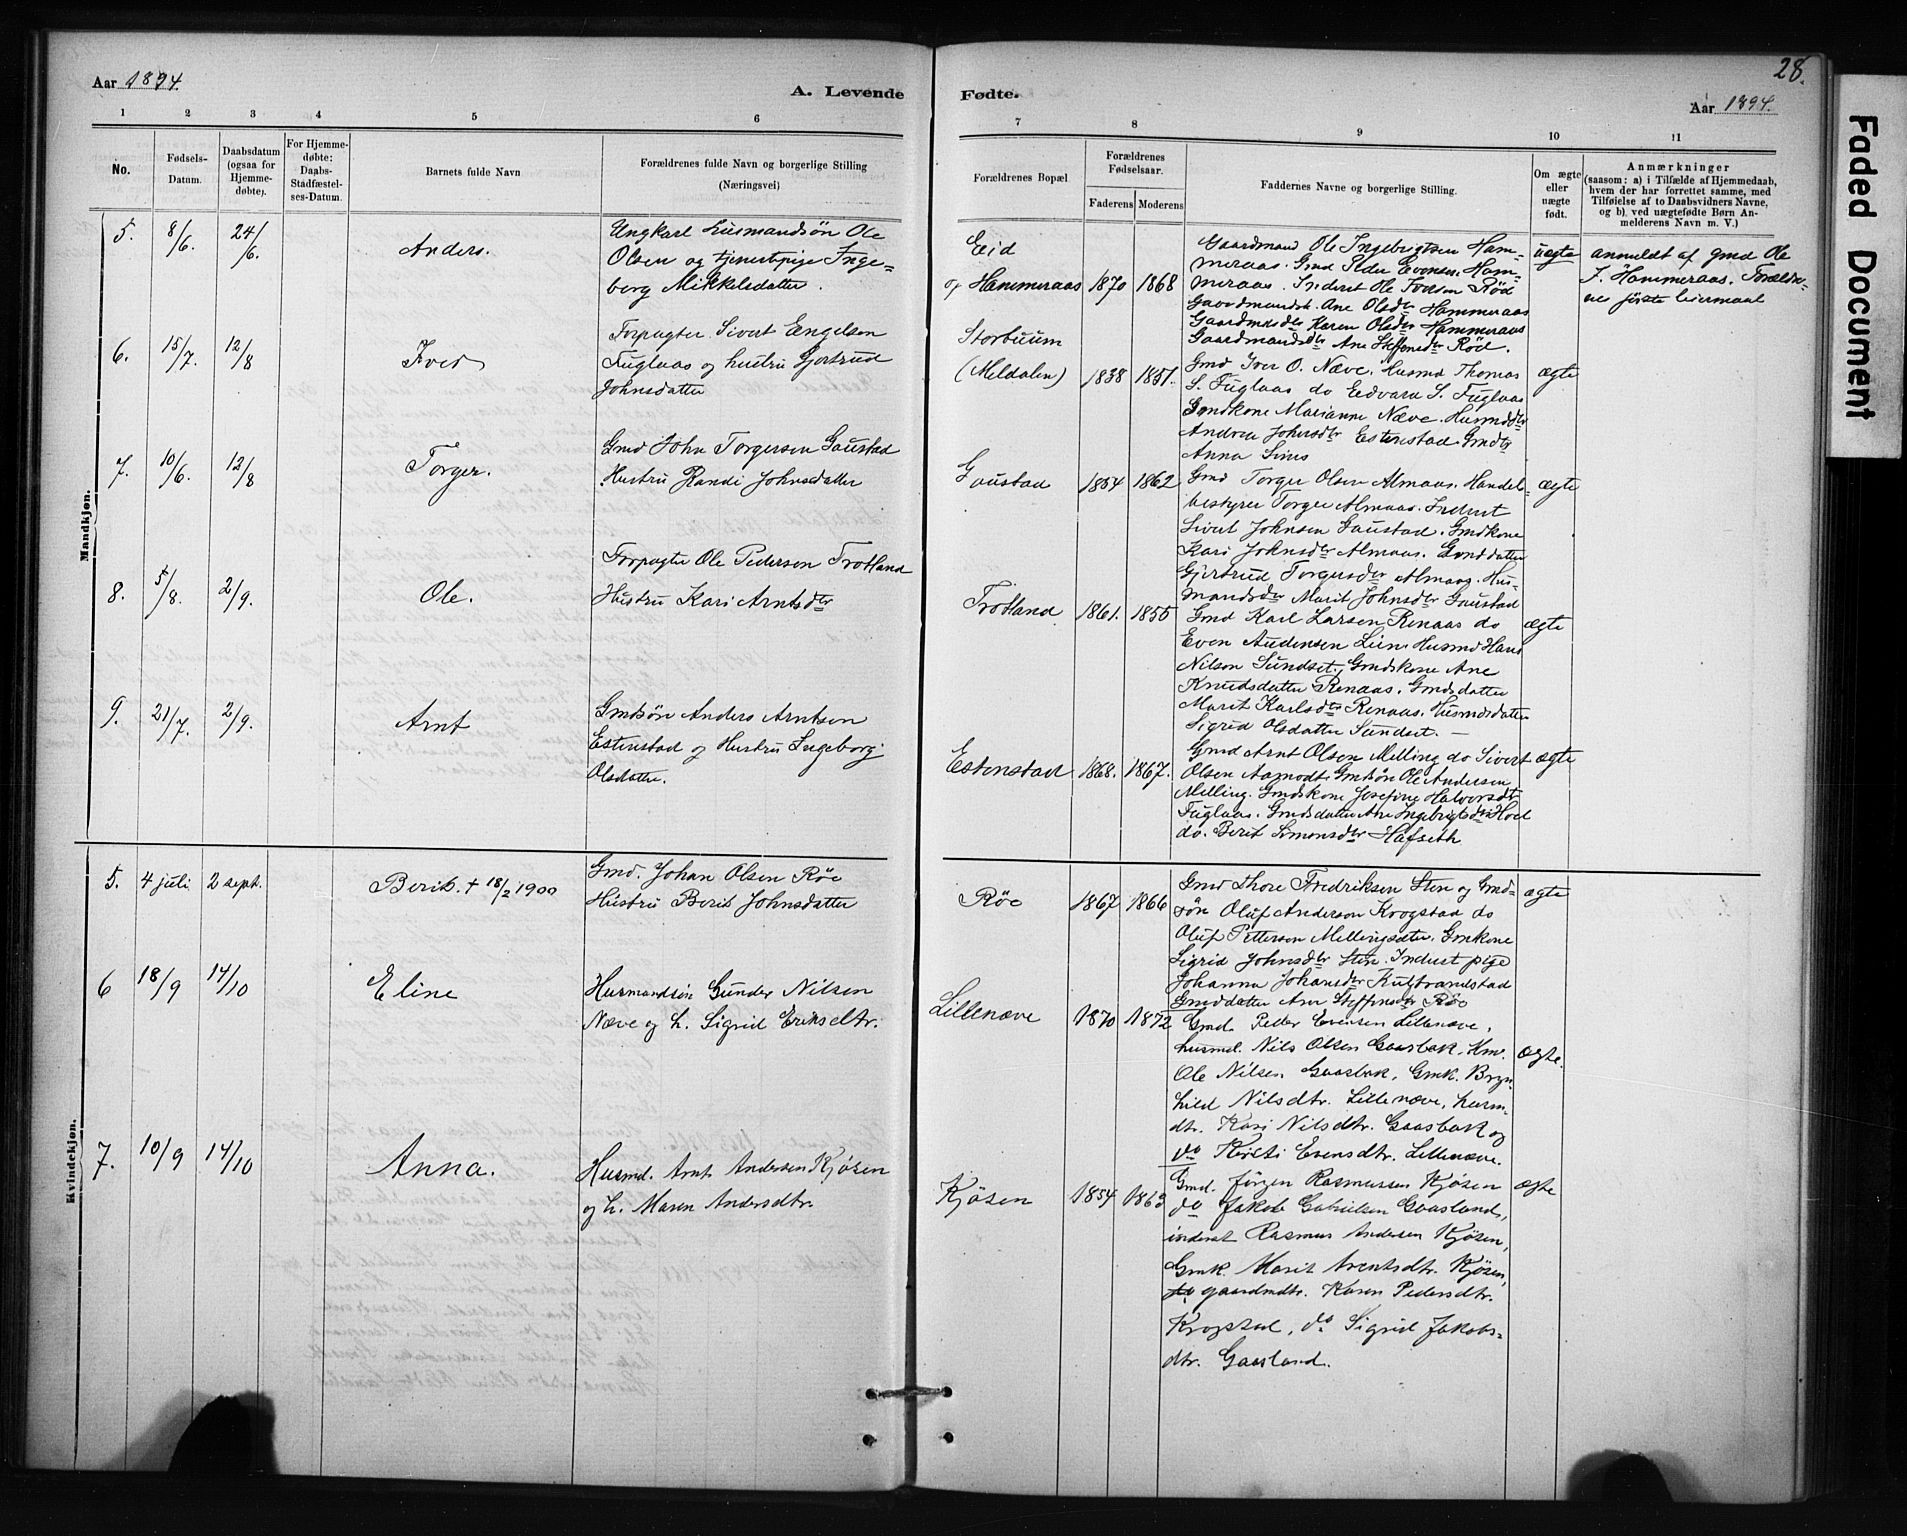 28.
Aar 1894.
A. Levende Fødte.
Aar 1894.
1 2 3 4 5 6 7 8 9 10 11
No.
Fødsels-
Datum.
Daabsdatum
(ogsaa for
Hjemme-
døbte).
For Hjemme-
døbte:
Daabs-
Stadfæstel-
ses-Datum.
Barnets fulde Navn
Forældrenes fulde Navn og borgerlige Stilling
(Næringsvei)
Forældrenes Bopæl
Forældrenes
Fødselsaar.
Faderens Moderens
Faddernes Navne og borgerlige Stilling.
Om ægte
eller
uægte
født.
Anmærkninger
(saasom: a) i Tilfælde af Hjemmedaab,
hvem der har forrettet samme, med
Tilføielse af to Daabsvidners Navne,
og b) ved uægtefødte Børn An-
melderens Navn m. V.)
Mandkjøn.
5. 8/6. 24/6. Anders.
Ungkarl Husmandsön Ole
Olsen og tjenestpige Inge-
borg Mikkelsdatter.
Eid
og Hammeraas 1870 1868
Gaardmand Ole Ingebrigtsen Ham-
meraas. Gmd Peder Evensen Ham-
meraas. Inderst Ole Iversen Röd
Gaardmandsk. Ane Olsdtr Hammeraas
Gaardmdsdtr Karen Olsdtr Hammeraas
Gaardmandsdtr Ane Steffensdtr Röd.
uægte
anmeldt af gmd Ole
I. Hammeraas. Forældre-
nes første leiermaal
6. 15/7. 12/8 Iver
Forpagter Sivert Engelsen
Fuglaas og hustru Gjertrud
Johnsdatter
Storbuum
(Meldalen) 1838 1851.
Gmd Iver O. Næve. Husmd Thomas
S. Fuglaas do Edvard S. Fuglaas
Gmdkone Marianne Næve. Husmddtr
Andrea Johnsdtr Estenstad Gmdtr
Anna Sims
ægte
7. 10/6. 12/8 Torger.
Gmd John Torgersen Gaustad
Hustru Randi Johnsdatter
Gaustad 1854 1862
Gmd Torger Olsen Almaas. Handels-
bestyrer Torger Almaas. Inderst
Sivert Johnsen Gaustad. Gmdkone
Kari Johnsdtr Almaas. Gmddatter
Gjertrud Torgersdtr Almaas. Hus-
mandsdtr Marit Johnsdtr Gaustad
ægte
8. 5/8. 2/9. Ole.
Forpagter Ole Pedersen Trotland
Hustru Kari Arntsdtr
Trotland 1861. 1855
Gmd Karl Larsen Renaas do
Even Andersen Lien. Husmd Hans
Nilsen Sundset. Gmdskone Ane
Knudsdatter Renaas. Gmdsdatter
Marit Karlsdtr Renaas. Husmdsdatter
Sigrid Olsdatter Sundset. —
ægte
9. 21/7. 2/9. Arnt
Gmdsön Anders Arntsen
Estenstad og Hustru Ingeborg
Olsdatter.
Estenstad 1868. 1867.
Gmd Arnt Olsen Melling do Sivert
Olsen Aamodt Gmdsön Ole Andersen
Melling. Gmdskone Josefine Halvorsdtr
Fuglaas. Gmdsdatter Ane Ingebrigtsdtr Hoel
do. Berit Simonsdtr Hafseth
ægte
Kvindekjøn.
5. 4 juli. 2 sept. Berit. + 18/2 1900
Gmd. Johan Olsen Röe
Hustru Berit Johnsdatter
Röe 1867 1866
Gmd Thore Fredriksen Sten og Gmd-
sön Oluf Anderson Krogstad do
Oluf Petterson Mellingsæter. Gmkone
Sigrid Johnsdtr Sten. Inderst pige
Johanna Johansdtr Kulbrandstad
Gmddatter Ane Steffensdtr Röe
ægte
6 18/9 14/10 Eline
Husmandsön Gunder Nilsen
Næve og h. Sigrid Eriksdtr.
Lillenæve 1870 1872
Gmd. Peder Evensen Lillenæve,
husmd. Nils Olsen Gaasbak, Km.
Ole Nilsen Gaasbak, Gmk. Bryn-
hild Nilsdtr. Lillenæve, husm-
dtr. Kari Nilsdtr. Gaasbak og
do Kirsti Evensdtr. Lillenæve.
ægte.
7. 10/9 14/10 Anna.
Husmd. Arnt Andersen Kjøsen
og h. Maren Andersdtr.
Kjøsen 1854 1863
Gmd. Jørgen Rasmussen Kjøsen
do Jakob Gabrielsen Gaasland,
inderst Rasmus Andersen Kjøsen,
Gmk. Marit Arentsdtr. Kjøsen,
gaardmdtr. Karen Pedersdtr.
Krogstad, do Sigrid Jakobs-
dtr. Gaasland.
ægte
Faded Document